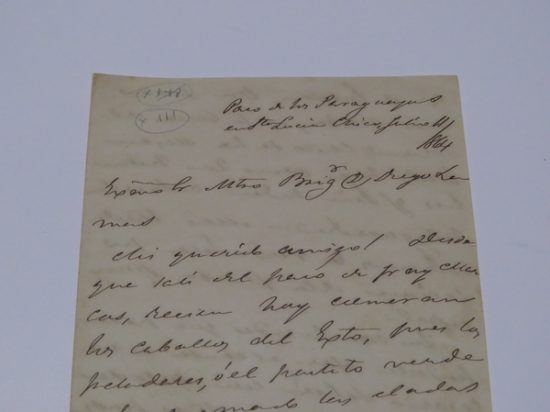 Paso de los Paraguayos
en Sta Lucia Chico, Julio 11/
1864
Exmo Sr Mtro Brigr D Diego La
mas
Mi querido amigo! Desde
que salí del paso de fray Mar
cos, recien hoy comeran
los caballos del Exto, pues los
peladares, ó el partido verde
las eladas